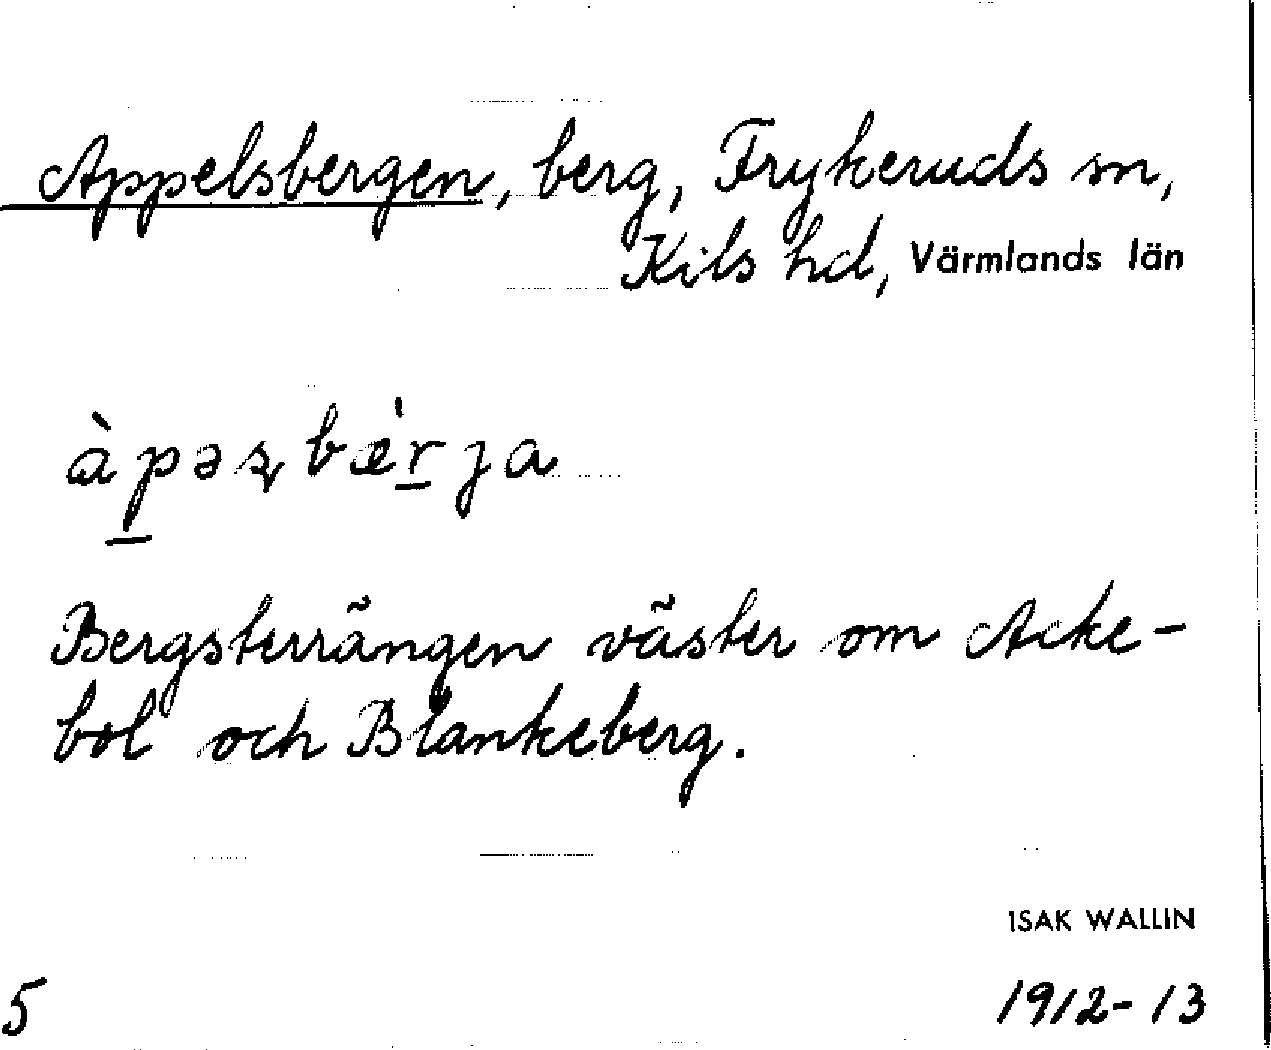 Appelsbergen, berg, Frykeruds sn,
Kils hd, Värmlands län
àp̲əʂbæ̀r̲ja
Bergsterrängen väster om Acke-
bol och Blankeberg.
ISAK WALLIN
5 1912-13